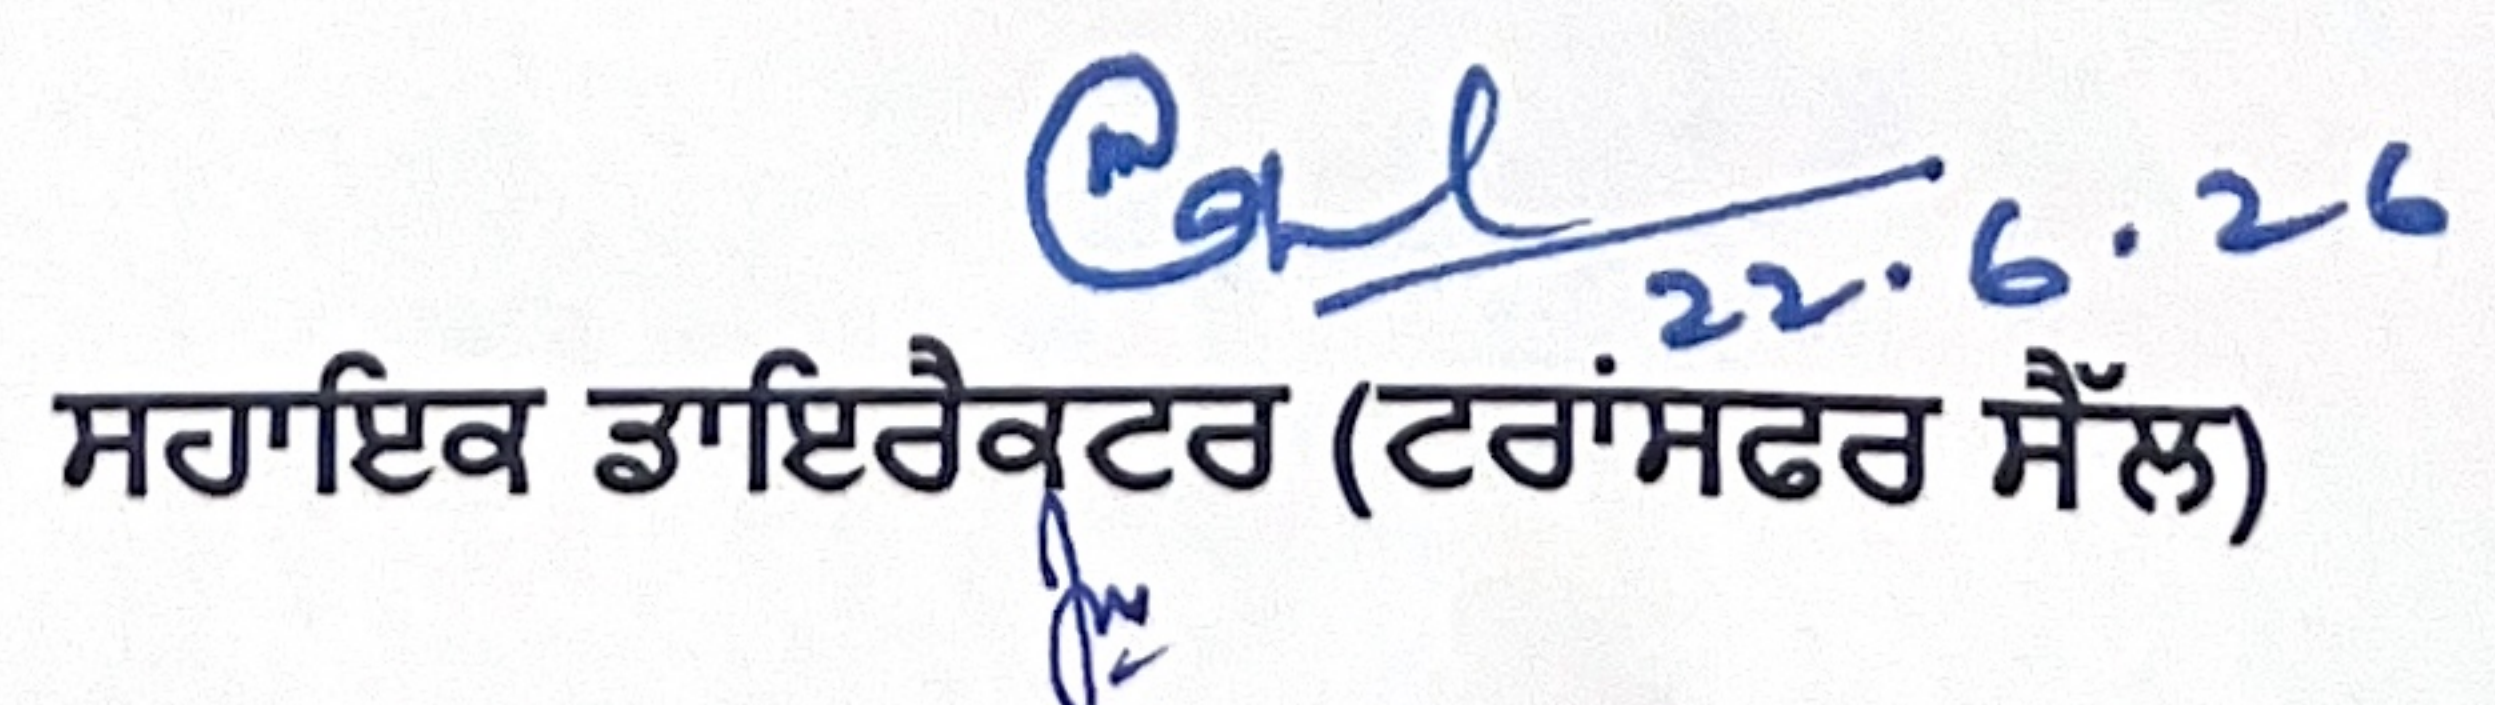 22.6.26
ਸਹਾਇਕ ਡਾਇਰੈਕਟਰ (ਟਰਾਂਸਫਰ ਸੈੱਲ)